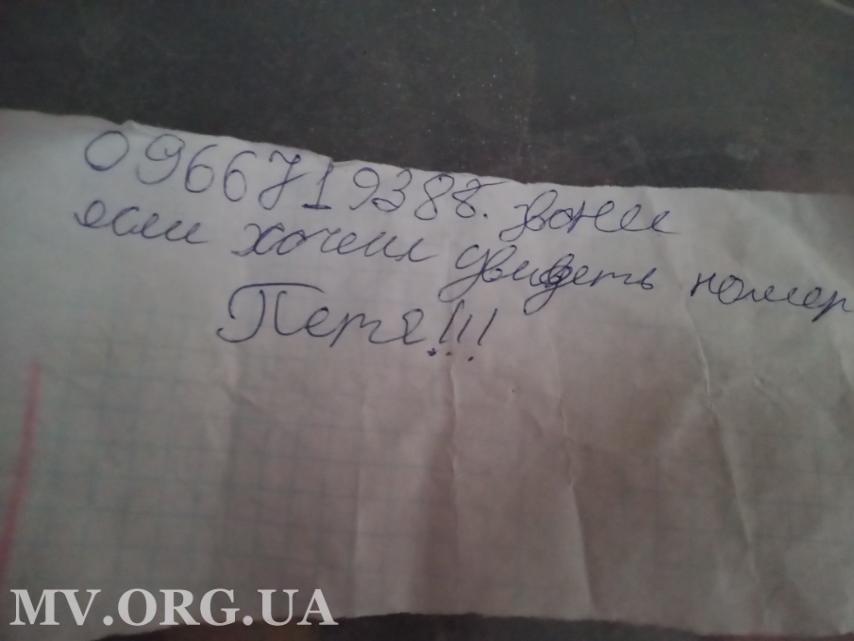 0966719388. звони
если хочеш увидеть номер
Петя!!!
MV.ORG.UA